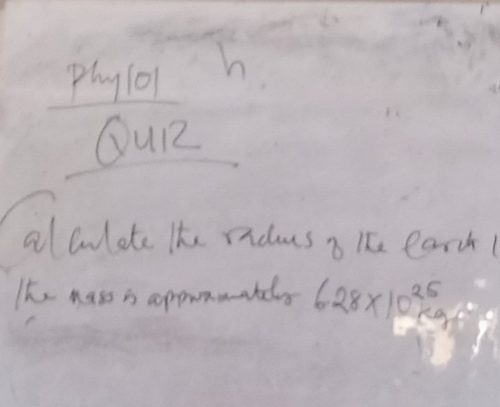 Phy101 h
QUIZ
Calculate the radius of the earth
the mass is approximately 628×10²⁵ kg